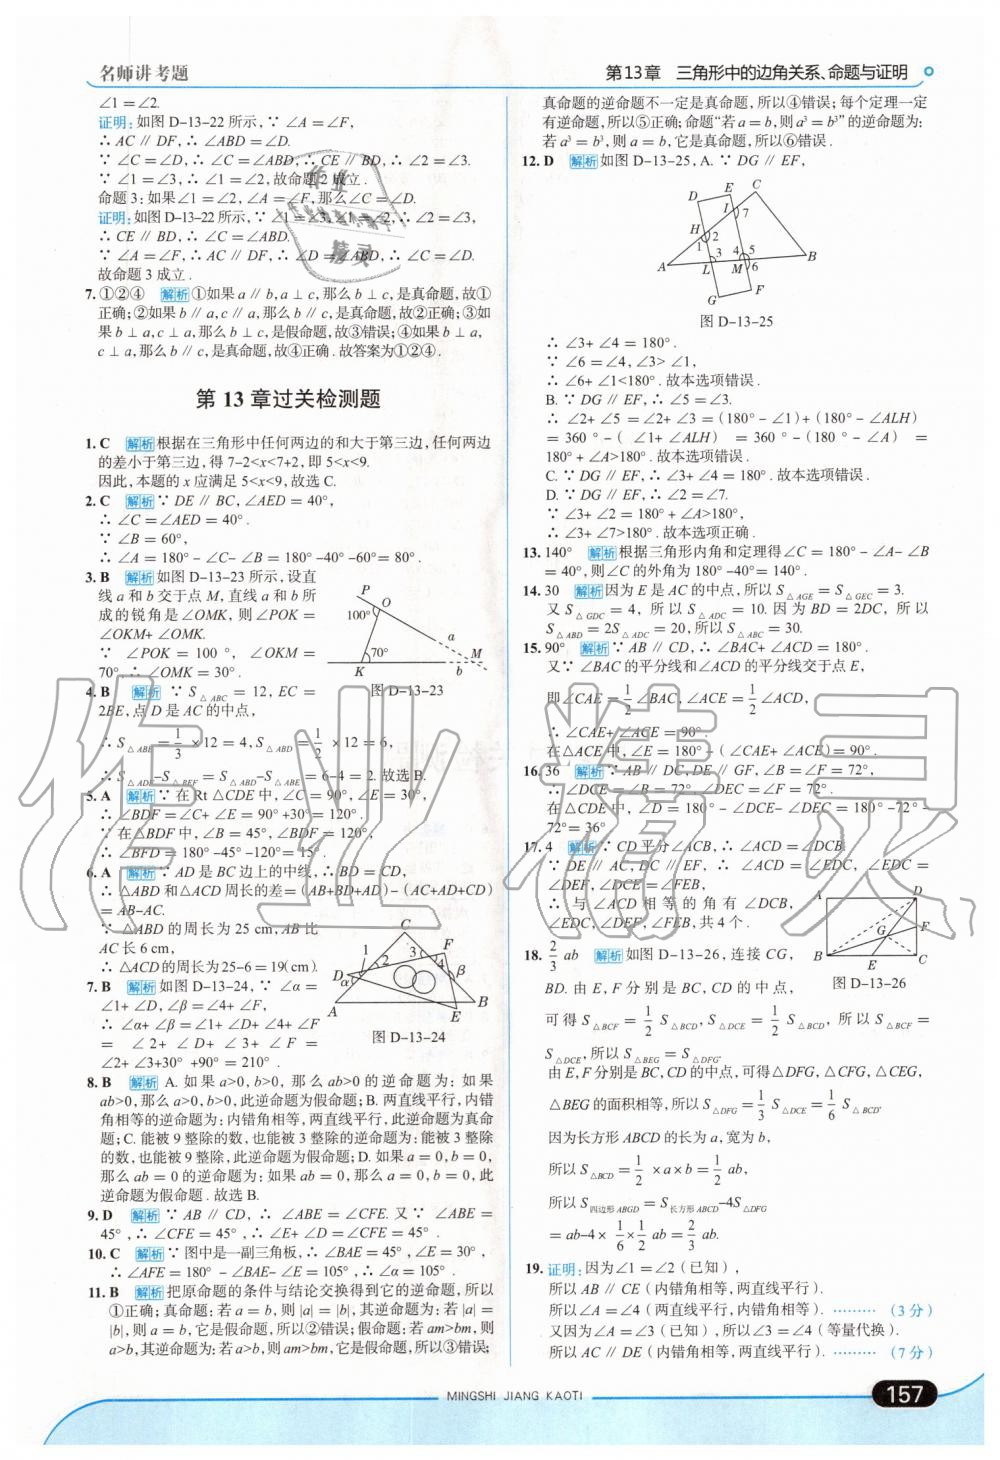 名师讲考题
第13章 三角形中的边角关系、命题与证明
∠1=∠2.
证明:如图 D-13-22 所示,∵ ∠A=∠F,
∴ AC∥DF,∴ ∠ABD=∠D.
∵ ∠C=∠D,∴ ∠C=∠ABD,∴ CE∥BD,∴ ∠2=∠3.
∵ ∠1=∠3,∴ ∠1=∠2,故命题 2 成立.
命题 3:如果∠1=∠2,∠A=∠F,那么∠C=∠D.
证明:如图 D-13-22 所示,∵ ∠1=∠3,∠1=∠2,∴ ∠2=∠3,
∴ CE∥BD,∴ ∠C=∠ABD.
∵ ∠A=∠F,∴ AC∥DF,∴ ∠D=∠ABD,∴ ∠C=∠D.
故命题 3 成立.
7. ①②④ 解析 ①如果 a∥b,a⊥c,那么 b⊥c,是真命题,故①
正确;②如果 b∥a,c∥a,那么 b∥c,是真命题,故②正确;③如
果 b⊥a,c⊥a,那么 b⊥c,是假命题,故③错误;④如果 b⊥a,
c⊥a,那么 b∥c,是真命题,故④正确.故答案为①②④.
第 13 章过关检测题
1. C 解析 根据在三角形中任何两边的和大于第三边,任何两边
的差小于第三边,得 7-2<x<7+2,即 5<x<9.
因此,本题的 x 应满足 5<x<9,故选 C.
2. C 解析 ∵ DE∥BC,∠AED=40°,
∴ ∠C=∠AED=40°.
∵ ∠B=60°,
∴ ∠A=180°-∠C-∠B=180°-40°-60°=80°.
3. B 解析 如图 D-13-23 所示,设直
线 a 和 b 交于点 M,直线 a 和 b 所
成的锐角是∠OMK,则∠POK=
∠OKM+∠OMK.
∵ ∠POK=100°,∠OKM=
70°,∴ ∠OMK=30°.
P
O
100°
a
70°
M
K
b
图 D-13-23
4. B 解析 ∵ S△ABC=12,EC=
2BE,点 D 是 AC 的中点,
∴ S△ABE=1/3×12=4,S△ABD=1/2×12=6,
∴ S△ADF-S△BEF=S△ABD-S△ABE=6-4=2.故选 B.
5. A 解析 ∵ 在 Rt△CDE 中,∠C=90°,∠E=30°,
∴ ∠BDF=∠C+∠E=90°+30°=120°.
∵ 在△BDF 中,∠B=45°,∠BDF=120°,
∴ ∠BFD=180°-45°-120°=15°.
6. A 解析 ∵ AD 是 BC 边上的中线,∴ BD=CD,
∴ △ABD 和△ACD 周长的差=(AB+BD+AD)-(AC+AD+CD)
=AB-AC.
∵ △ABD 的周长为 25 cm,AB 比
AC 长 6 cm,
∴ △ACD 的周长为 25-6=19(cm).
7. B 解析 如图 D-13-24,∵ ∠α=
∠1+∠D,∠β=∠4+∠F,
∴ ∠α+∠β=∠1+∠D+∠4+∠F
=∠2+∠D+∠3+∠F=
∠2+∠3+30°+90°=210°.
C
F
1
2
3
4
D
α
β
A
E
B
图 D-13-24
8. B 解析 A. 如果 a>0,b>0,那么 ab>0 的逆命题为:如果
ab>0,那么 a>0,b>0,此逆命题为假命题;B. 两直线平行,内错
角相等的逆命题为:内错角相等,两直线平行,此逆命题为真命
题;C. 能被 9 整除的数,也能被 3 整除的逆命题为:能被 3 整除
的数,也能被 9 整除,此逆命题为假命题;D. 如果 a=0,b=0,
那么 ab=0 的逆命题为:如果 ab=0,那么 a=0,b=0,此
逆命题为假命题.故选 B.
9. D 解析 ∵ AB∥CD,∴ ∠ABE=∠CFE.又∵ ∠ABE=
45°,∴ ∠CFE=45°,∴ ∠E+∠D=∠CFE=45°.
10. C 解析 ∵ 图中是一副三角板,∴ ∠BAE=45°,∠E=30°,
∴ ∠AFE=180°-∠BAE-∠E=105°,∴ ∠α=105°.
11. B 解析 把原命题的条件与结论交换得到它的逆命题,所以
①正确;真命题:若 a=b,则|a|=|b|,其逆命题为:若|a|=
|b|,则 a=b,它是假命题,所以②错误;假命题:若 am>bm,则
a>b,其逆命题为:若 a>b,则 am>bm,它是假命题,所以③错误;
真命题的逆命题不一定是真命题,所以④错误;每个定理一定
有逆命题,所以⑤正确;命题“若 a=b,则 a³=b³”的逆命题为:
若 a³=b³,则 a=b,它是真命题,所以⑥错误.
12. D 解析 如图 D-13-25,A. ∵ DG∥EF,
D
E
C
I
7
H
2
1
3
4
5
A
L
M
6
B
G
F
图 D-13-25
∴ ∠3+∠4=180°.
∵ ∠6=∠4,∠3>∠1,
∴ ∠6+∠1<180°.故本选项错误.
B. ∵ DG∥EF,∴ ∠5=∠3.
∴ ∠2+∠5=∠2+∠3=(180°-∠1)+(180°-∠ALH)
=360°-(∠1+∠ALH)=360°-(180°-∠A)=
180°+∠A>180°.故本选项错误.
C. ∵ DG∥EF,∴ ∠3+∠4=180°.故本选项错误.
D. ∵ DG∥EF,∴ ∠2=∠7.
∵ ∠3+∠2=180°+∠A>180°,
∴ ∠3+∠7>180°.故本选项正确.
13. 140° 解析 根据三角形内角和定理得∠C=180°-∠A-∠B
=40°,则∠C 的外角为 180°-40°=140°.
14. 30 解析 因为 E 是 AC 的中点,所以 S△AGE=S△GEC=3.
又 S△GDC=4,所以 S△ADC=10.因为 BD=2DC,所以
S△ABD=2S△ADC=20,所以 S△ABC=30.
15. 90° 解析 ∵ AB∥CD,∴ ∠BAC+∠ACD=180°.
又∵ ∠BAC 的平分线和∠ACD 的平分线交于点 E,
即∠CAE=1/2∠BAC,∠ACE=1/2∠ACD,
∴ ∠CAE+∠ACE=90°.
在△ACE 中,∠E=180°-(∠CAE+∠ACE)=90°.
16. 36 解析 ∵ AB∥DC,DE∥GF,∠B=∠F=72°,
∴ ∠DCE=∠B=72°,∠DEC=∠F=72°.
在△CDE 中,∠D=180°-∠DCE-∠DEC=180°-72°-
72°=36°.
17. 4 解析 ∵ CD 平分∠ACB,∴ ∠ACD=∠DCB.
∵ DE∥AC,DC∥EF,∴ ∠ACD=∠EDC,∠EDC=
∠DEF,∠DCE=∠FEB,
∴ 与∠ACD 相等的角有∠DCB,
∠EDC,∠DEF,∠FEB,共 4 个.
A
D
G
F
B
E
C
图 D-13-26
18. 2/3 ab 解析 如图 D-13-26,连接 CG,
BD. 由 E,F 分别是 BC,CD 的中点,
可得 S△BCF=1/2 S△BCD,S△DCE=1/2 S△BCD,所以 S△BCF=
S△DCE,所以 S△BEG=S△DFG.
由 E,F 分别是 BC,CD 的中点,可得△DFG,△CFG,△CEG,
△BEG 的面积相等,所以 S△DFG=1/3 S△DCE=1/6 S△BCD.
因为长方形 ABCD 的长为 a,宽为 b,
所以 S△BCD=1/2×a×b=1/2 ab,
所以 S四边形ABGD=S长方形ABCD-4S△DFG
=ab-4×1/6×1/2 ab=2/3 ab.
19. 证明:因为∠1=∠2(已知),
所以 AB∥CE(内错角相等,两直线平行).
所以∠A=∠4(两直线平行,内错角相等). ……… (3 分)
又因为∠A=∠3(已知),所以∠3=∠4(等量代换).
所以 AC∥DE(内错角相等,两直线平行). ……… (7 分)
MINGSHI JIANG KAOTI
157
作业精灵